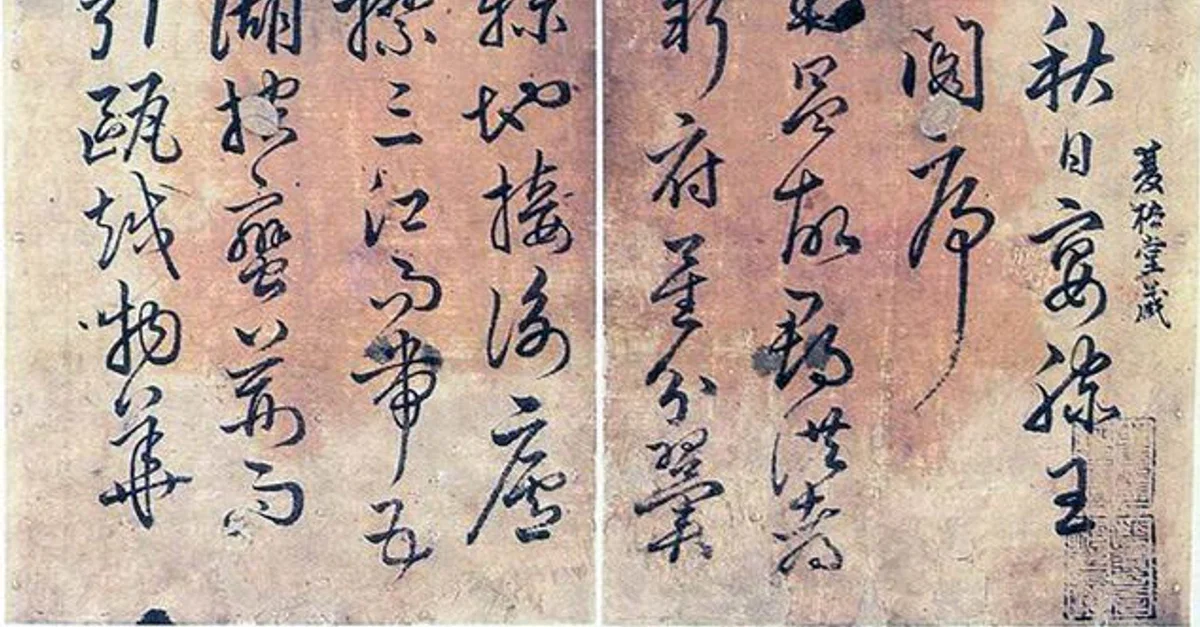 堂藏
秋日宴滕王
閣序
故郡洪都
新府星分翼
軫地接衡廬
襟三江而帶五
湖控蠻荊而
引甌越物華